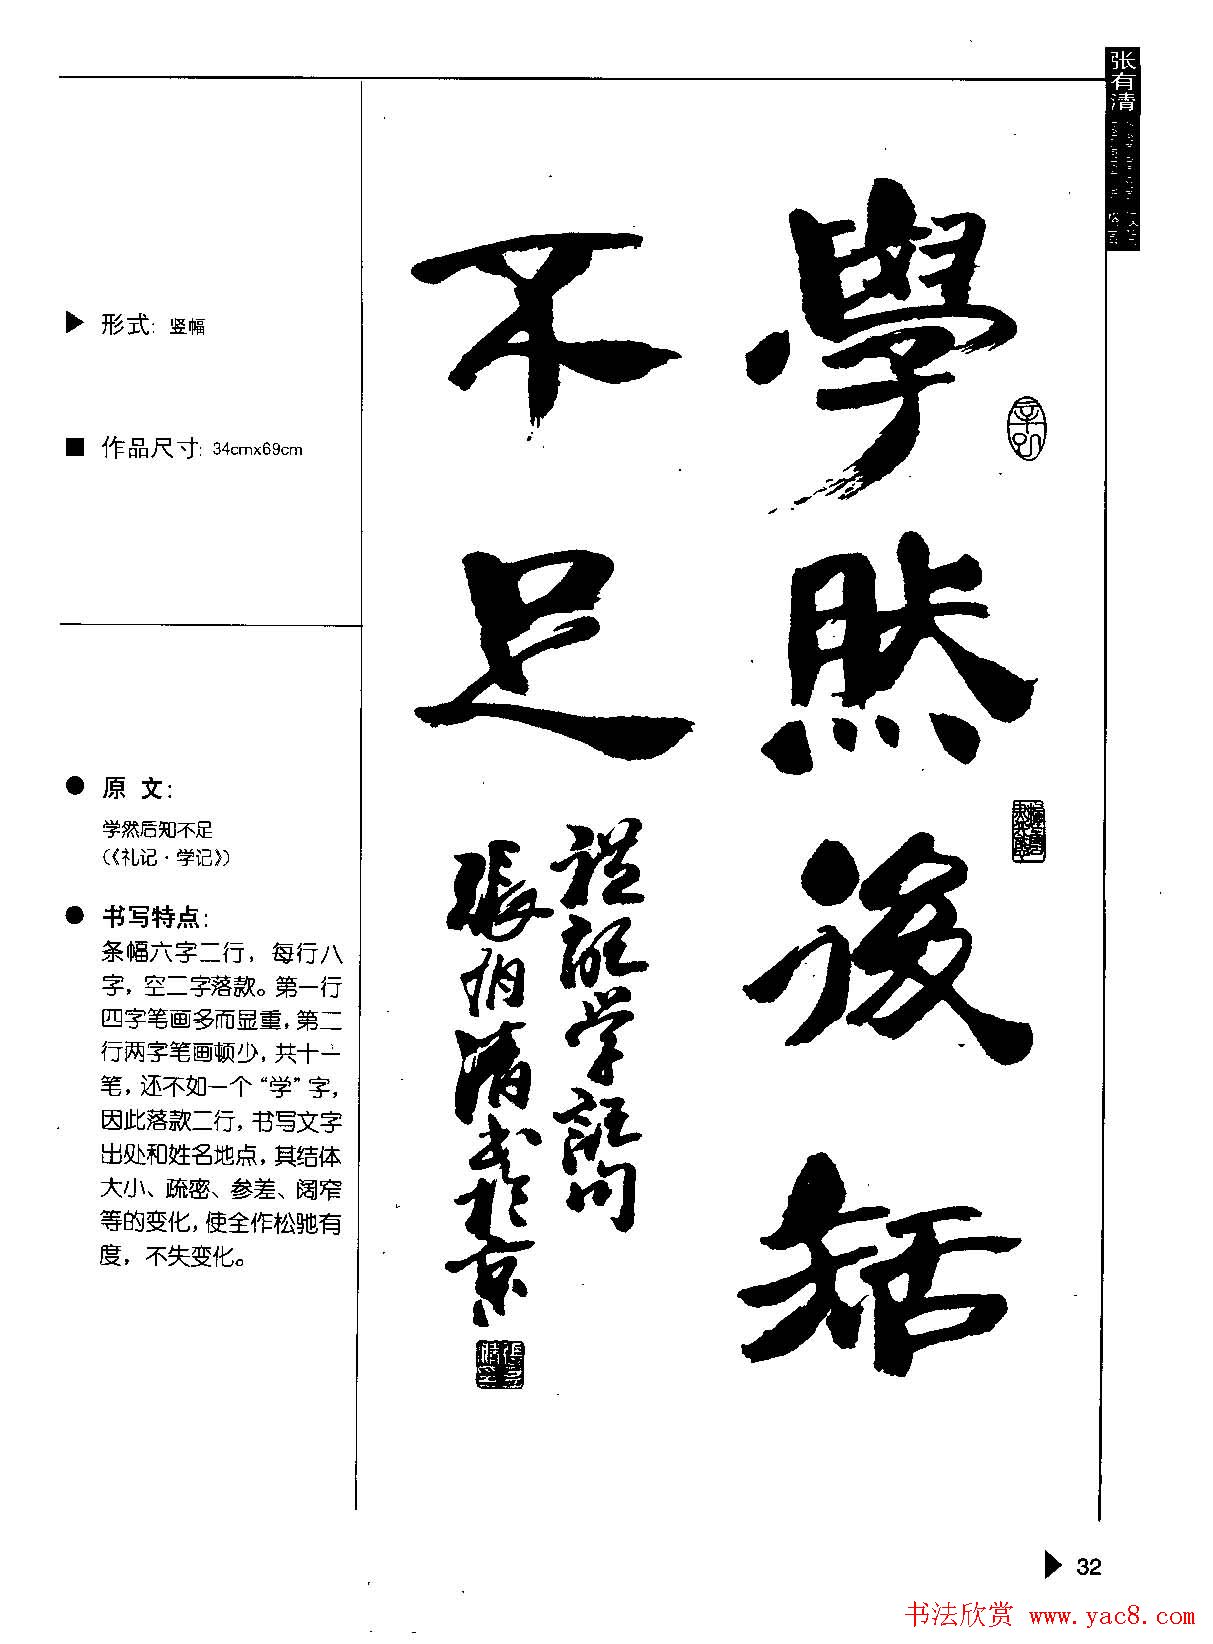 张有清
形式：竖幅
作品尺寸：34cmx69cm
原 文：
学然后知不足
（《礼记·学记》）
书写特点：
条幅六字二行，每行八
字，空二字落款。第一行
四字笔画多而显重，第二
行两字笔画顿少，共十一
笔，还不如一个“学”字，
因此落款二行，书写文字
出处和姓名地点，其结体
大小、疏密、参差、阔窄
等的变化，使全作松驰有
度，不失变化。
學然後知
不足
礼記学記句
張有清書於京
32
书法欣赏 www.yac8.com